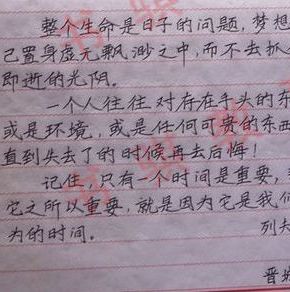 整个生命是日子的问题,梦想
己置身虚无飘渺之中,而不去抓
即逝的光阴。
一个人往往对存在手头的东
或是环境,或是任何可贵的东西
直到失去了的时候再去后悔!
记住,只有一个时间是重要,
它之所以重要,就是因为它是我们
为的时间。
列夫
晋城